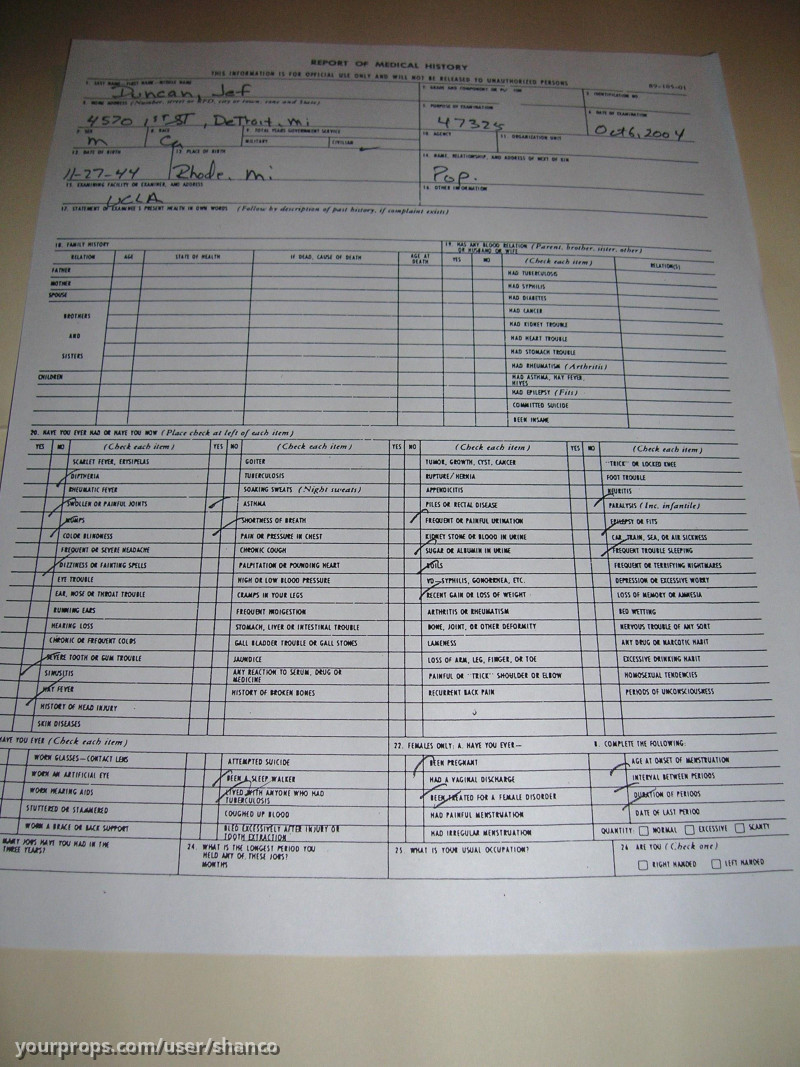 REPORT OF MEDICAL HISTORY
THIS INFORMATION IS FOR OFFICIAL USE ONLY AND WILL NOT BE RELEASED TO UNAUTHORIZED PERSONS
89-105-01
1. LAST NAME-FIRST NAME-MIDDLE NAME
Duncan, Jef
3. IDENTIFICATION NO.
4. HOME ADDRESS (Number, street or RFD, city or town, zone and State)
4570 1st ST, Detroit, Mi
5. PURPOSE OF EXAMINATION
47325
6. DATE OF EXAMINATION
Oct 6, 2004
7. SEX
m
8. RACE
Ca
9. TOTAL YEARS GOVERNMENT SERVICE
MILITARY
CIVILIAN
10. AGENCY
11. ORGANIZATION UNIT
12. DATE OF BIRTH
11-27-44
13. PLACE OF BIRTH
Rhode, Mi
14. NAME, RELATIONSHIP, AND ADDRESS OF NEXT OF KIN
Pop.
15. EXAMINING FACILITY OR EXAMINER, AND ADDRESS
UCLA
16. OTHER INFORMATION
17. STATEMENT OF EXAMINEE'S PRESENT HEALTH IN OWN WORDS (Follow by description of past history, if complaint exists)
18. FAMILY HISTORY
19. HAS ANY BLOOD RELATION (Parent, brother, sister, other)
OR HUSBAND OR WIFE
RELATION AGE STATE OF HEALTH IF DEAD, CAUSE OF DEATH AGE AT DEATH YES NO (Check each item) RELATION(S)
FATHER
MOTHER
SPOUSE
BROTHERS
AND
SISTERS
CHILDREN
HAD TUBERCULOSIS
HAD SYPHILIS
HAD DIABETES
HAD CANCER
HAD KIDNEY TROUBLE
HAD HEART TROUBLE
HAD STOMACH TROUBLE
HAD RHEUMATISM (Arthritis)
HAD ASTHMA, HAY FEVER,
HIVES
HAD EPILEPSY (Fits)
COMMITTED SUICIDE
BEEN INSANE
20. HAVE YOU EVER HAD OR HAVE YOU NOW (Place check at left of each item)
YES NO (Check each item)
SCARLET FEVER, ERYSIPELAS
DIPHTHERIA
RHEUMATIC FEVER
SWOLLEN OR PAINFUL JOINTS
MUMPS
COLOR BLINDNESS
FREQUENT OR SEVERE HEADACHE
DIZZINESS OR FAINTING SPELLS
EYE TROUBLE
EAR, NOSE OR THROAT TROUBLE
RUNNING EARS
HEARING LOSS
CHRONIC OR FREQUENT COLDS
SEVERE TOOTH OR GUM TROUBLE
SINUSITIS
HAY FEVER
HISTORY OF HEAD INJURY
SKIN DISEASES
YES NO (Check each item)
GOITER
TUBERCULOSIS
SOAKING SWEATS (Night sweats)
ASTHMA
SHORTNESS OF BREATH
PAIN OR PRESSURE IN CHEST
CHRONIC COUGH
PALPITATION OR POUNDING HEART
HIGH OR LOW BLOOD PRESSURE
CRAMPS IN YOUR LEGS
FREQUENT INDIGESTION
STOMACH, LIVER OR INTESTINAL TROUBLE
GALL BLADDER TROUBLE OR GALL STONES
JAUNDICE
ANY REACTION TO SERUM, DRUG OR
MEDICINE
HISTORY OF BROKEN BONES
YES NO (Check each item)
TUMOR, GROWTH, CYST, CANCER
RUPTURE/HERNIA
APPENDICITIS
PILES OR RECTAL DISEASE
FREQUENT OR PAINFUL URINATION
KIDNEY STONE OR BLOOD IN URINE
SUGAR OR ALBUMIN IN URINE
BOILS
VD-SYPHILIS, GONORRHEA, ETC.
RECENT GAIN OR LOSS OF WEIGHT
ARTHRITIS OR RHEUMATISM
BONE, JOINT, OR OTHER DEFORMITY
LAMENESS
LOSS OF ARM, LEG, FINGER, OR TOE
PAINFUL OR "TRICK" SHOULDER OR ELBOW
RECURRENT BACK PAIN
YES NO (Check each item)
"TRICK" OR LOCKED KNEE
FOOT TROUBLE
NEURITIS
PARALYSIS (Inc. infantile)
EPILEPSY OR FITS
CAR, TRAIN, SEA, OR AIR SICKNESS
FREQUENT TROUBLE SLEEPING
FREQUENT OR TERRIFYING NIGHTMARES
DEPRESSION OR EXCESSIVE WORRY
LOSS OF MEMORY OR AMNESIA
BED WETTING
NERVOUS TROUBLE OF ANY SORT
ANY DRUG OR NARCOTIC HABIT
EXCESSIVE DRINKING HABIT
HOMOSEXUAL TENDENCIES
PERIODS OF UNCONSCIOUSNESS
HAVE YOU EVER (Check each item)
WORN GLASSES-CONTACT LENS
WORN AN ARTIFICIAL EYE
WORN HEARING AIDS
STUTTERED OR STAMMERED
WORN A BRACE OR BACK SUPPORT
ATTEMPTED SUICIDE
BEEN A SLEEP WALKER
LIVED WITH ANYONE WHO HAD
TUBERCULOSIS
COUGHED UP BLOOD
BLED EXCESSIVELY AFTER INJURY OR
TOOTH EXTRACTION
22. FEMALES ONLY: A. HAVE YOU EVER-
BEEN PREGNANT
HAD A VAGINAL DISCHARGE
BEEN TREATED FOR A FEMALE DISORDER
HAD PAINFUL MENSTRUATION
HAD IRREGULAR MENSTRUATION
B. COMPLETE THE FOLLOWING:
AGE AT ONSET OF MENSTRUATION
INTERVAL BETWEEN PERIODS
DURATION OF PERIODS
DATE OF LAST PERIOD
QUANTITY: NORMAL EXCESSIVE SCANTY
MANY JOBS HAVE YOU HAD IN THE
THREE YEARS?
24. WHAT IS THE LONGEST PERIOD YOU
HELD ANY OF THESE JOBS?
MONTHS
25. WHAT IS YOUR USUAL OCCUPATION?
26 ARE YOU (Check one)
RIGHT HANDED LEFT HANDED
yourprops.com/user/shanco